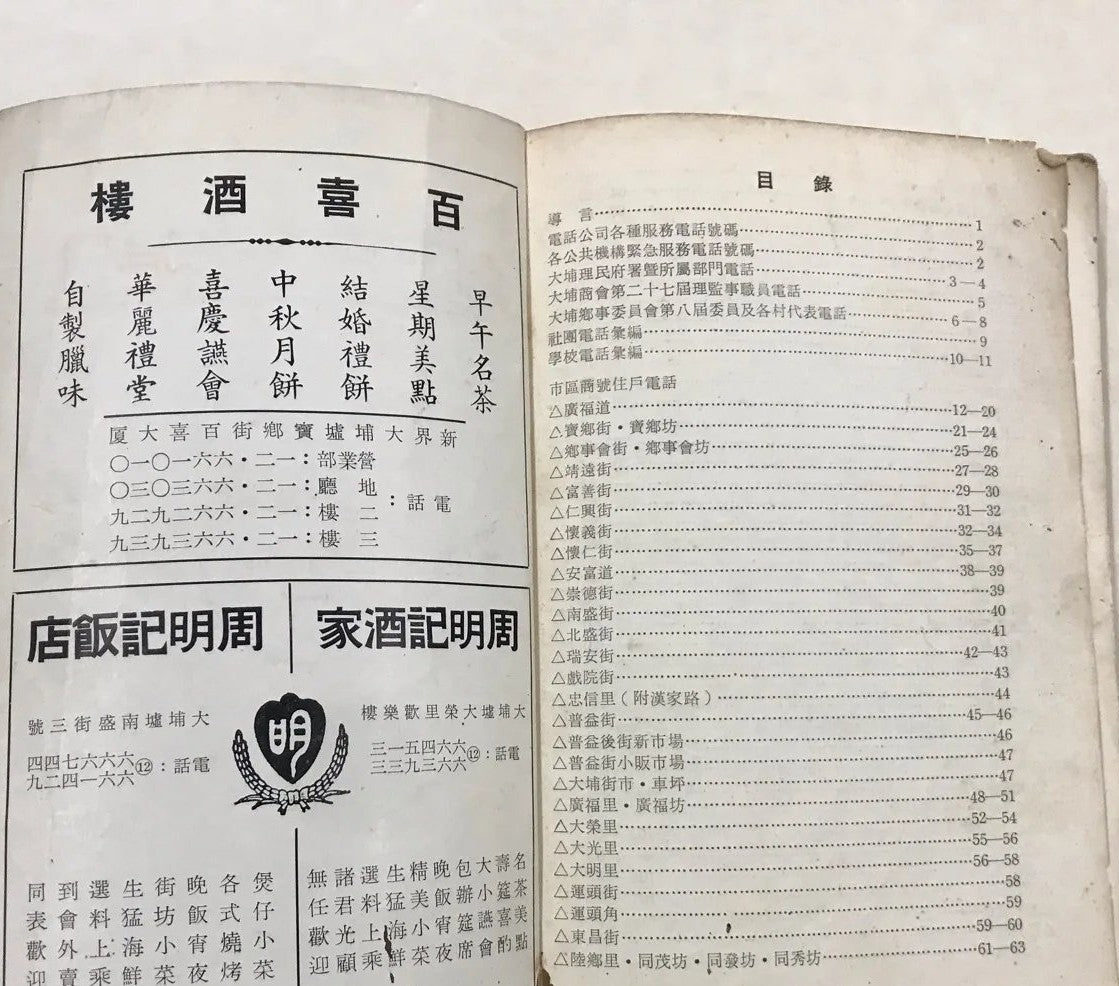 百喜酒樓
早午名茶
星期美點
結婚禮餅
中秋月餅
喜慶讌會
華麗禮堂
自製臘味
新界大埔墟寶鄉街百喜大厦
電話:
營業部:一二·六六一〇一〇
地廳:一二·六六三〇三〇
二樓:一二·六六二九二九
三樓:一二·六六三九三九
周明記酒家
大埔墟大榮里歡樂樓
電話:⑫六六四五一三
六六三九三三
名茶美點
壽筵喜酌
大小讌會
包辦筵席
晚飯宵夜
精美小菜
生猛海鮮
選料上乘
諸君光顧
無任歡迎
明
周明記飯店
大埔墟南盛街三號
電話:⑫六六六七四四
六六一四二九
煲仔小菜
各式燒烤
晚飯宵夜
街坊小菜
生猛海鮮
選料上乘
到會外賣
同表歡迎
目錄
導言 1
電話公司各種服務電話號碼 2
各公共機構緊急服務電話號碼 2
大埔理民府署暨所屬部門電話 3—4
大埔商會第二十七屆理監事職員電話 5
大埔鄉事委員會第八屆委員及各村代表電話 6—8
社團電話彙編 9
學校電話彙編 10—11
市區商號住戶電話
△廣福道 12—20
△寶鄉街·寶鄉坊 21—24
△鄉事會街·鄉事會坊 25—26
△靖遠街 27—28
△富善街 29—30
△仁興街 31—32
△懷義街 32—34
△懷仁街 35—37
△安富道 38—39
△崇德街 39
△南盛街 40
△北盛街 41
△瑞安街 42—43
△戲院街 43
△忠信里(附漢家路) 44
△普益街 45—46
△普益後街新市場 46
△普益街小販市場 47
△大埔街市·車坪 47
△廣福里·廣福坊 48—51
△大榮里 52—54
△大光里 55—56
△大明里 56—58
△運頭街 58
△運頭角 59
△東昌街 59—60
△陸鄉里·同茂坊·同發坊·同秀坊 61—63